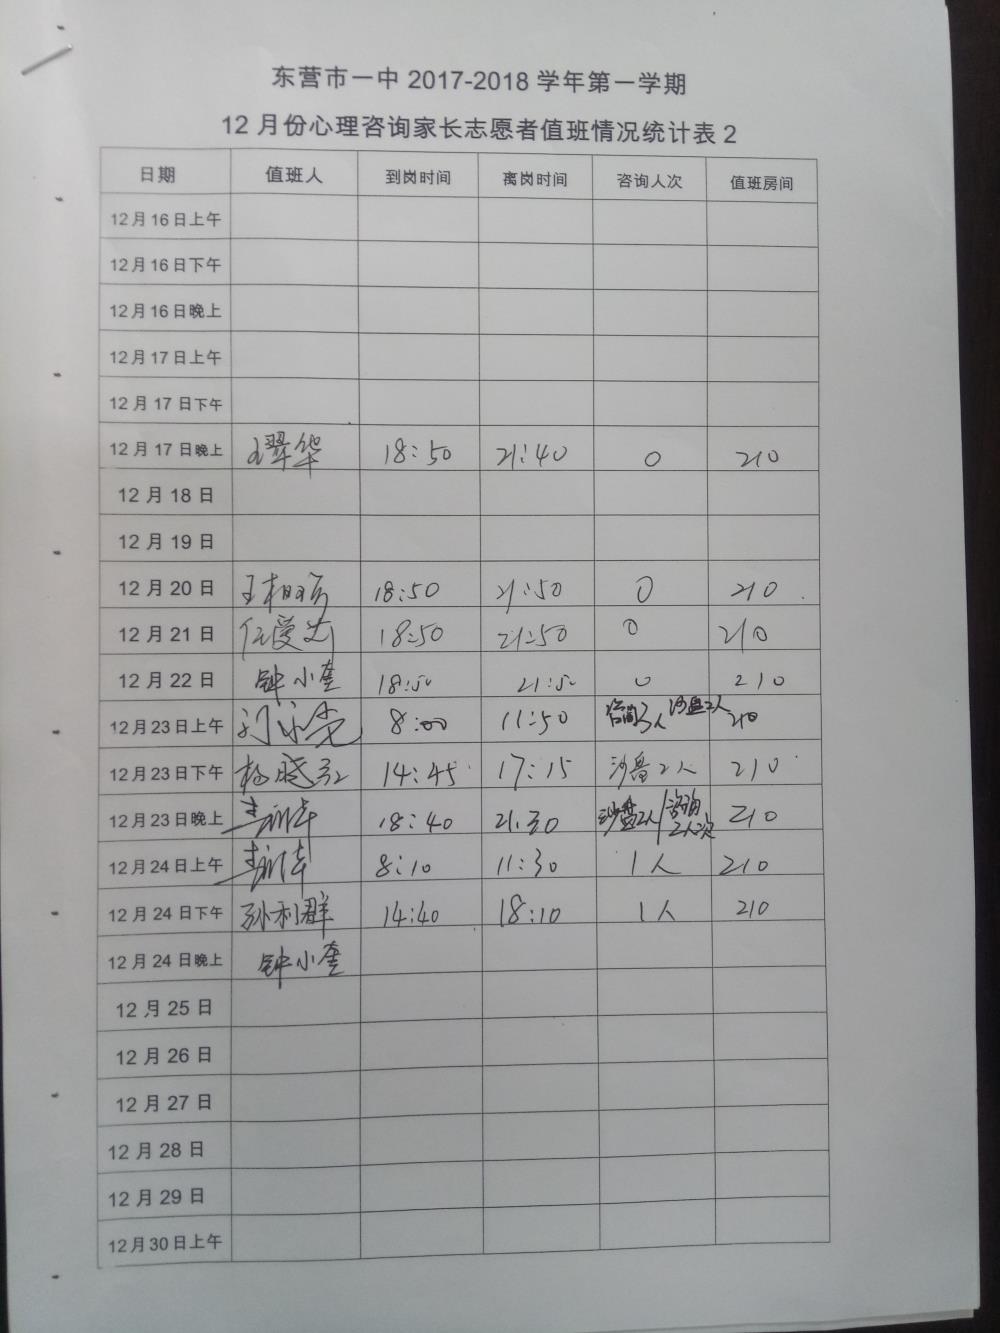 东营市一中 2017-2018 学年第一学期
12 月份心理咨询家长志愿者值班情况统计表 2
日期 值班人 到岗时间 离岗时间 咨询人次 值班房间
12月16日上午
12月16日下午
12月16日晚上
12月17日上午
12月17日下午
12月17日晚上 王翠华 18:50 21:40 0 210
12月18日
12月19日
12月20日 18:50 21:50 0 210
12月21日 18:50 21:50 0 210
12月22日 钟小奎 18:50 21:50 0 210
12月23日上午 8:00 11:50 3人 沙盘2人 210
12月23日下午 14:45 17:15 沙盘2人 210
12月23日晚上 18:40 21:30 沙盘2人/咨询2人次 210
12月24日上午 8:10 11:30 1人 210
12月24日下午 孙利群 14:40 18:10 1人 210
12月24日晚上 钟小奎
12月25日
12月26日
12月27日
12月28日
12月29日
12月30日上午